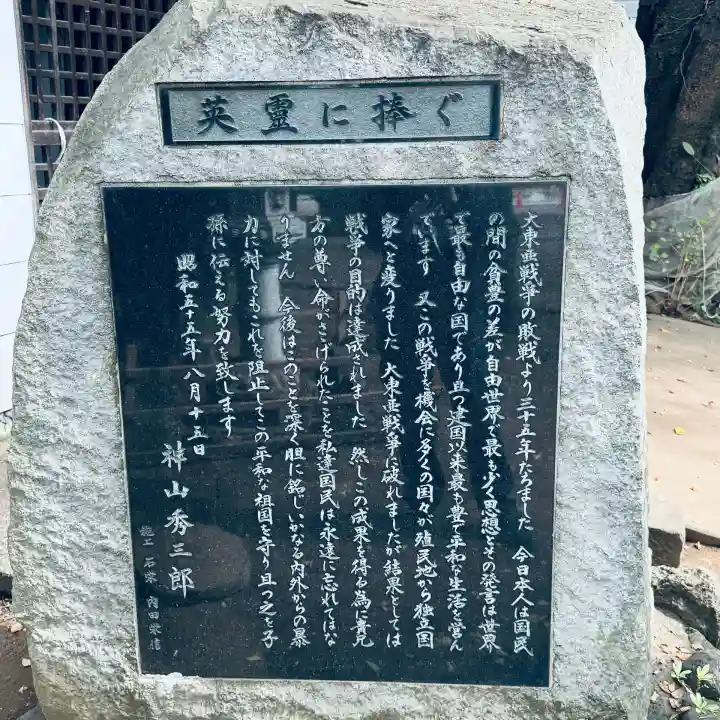 英霊に捧ぐ
大東亜戦争の敗戦より三十五年たちました 今日本人は国民
の間の貧豊の差が自由世界で最も少く思想とその発言は世界
で最も自由な国であり且つ建国以来最も豊で平和な生活を営ん
でいます 又この戦争を機会に多くの国々が殖民地から独立国
家へと変りました 大東亜戦争に破れましたが結果としては
戦争の目的は達成されました 然しこの成果を得る為に貴兄
方の尊い命がさげられたことを私達国民は永遠に忘れてはな
りません 今後はこのことを深く胆に銘じいかなる内外からの暴
力に対してもこれを阻止してこの平和な祖国を守り且つ之を子
孫に伝える努力を致します
昭和五十五年八月十五日
神山秀三郎
施工 石栄 内田栄